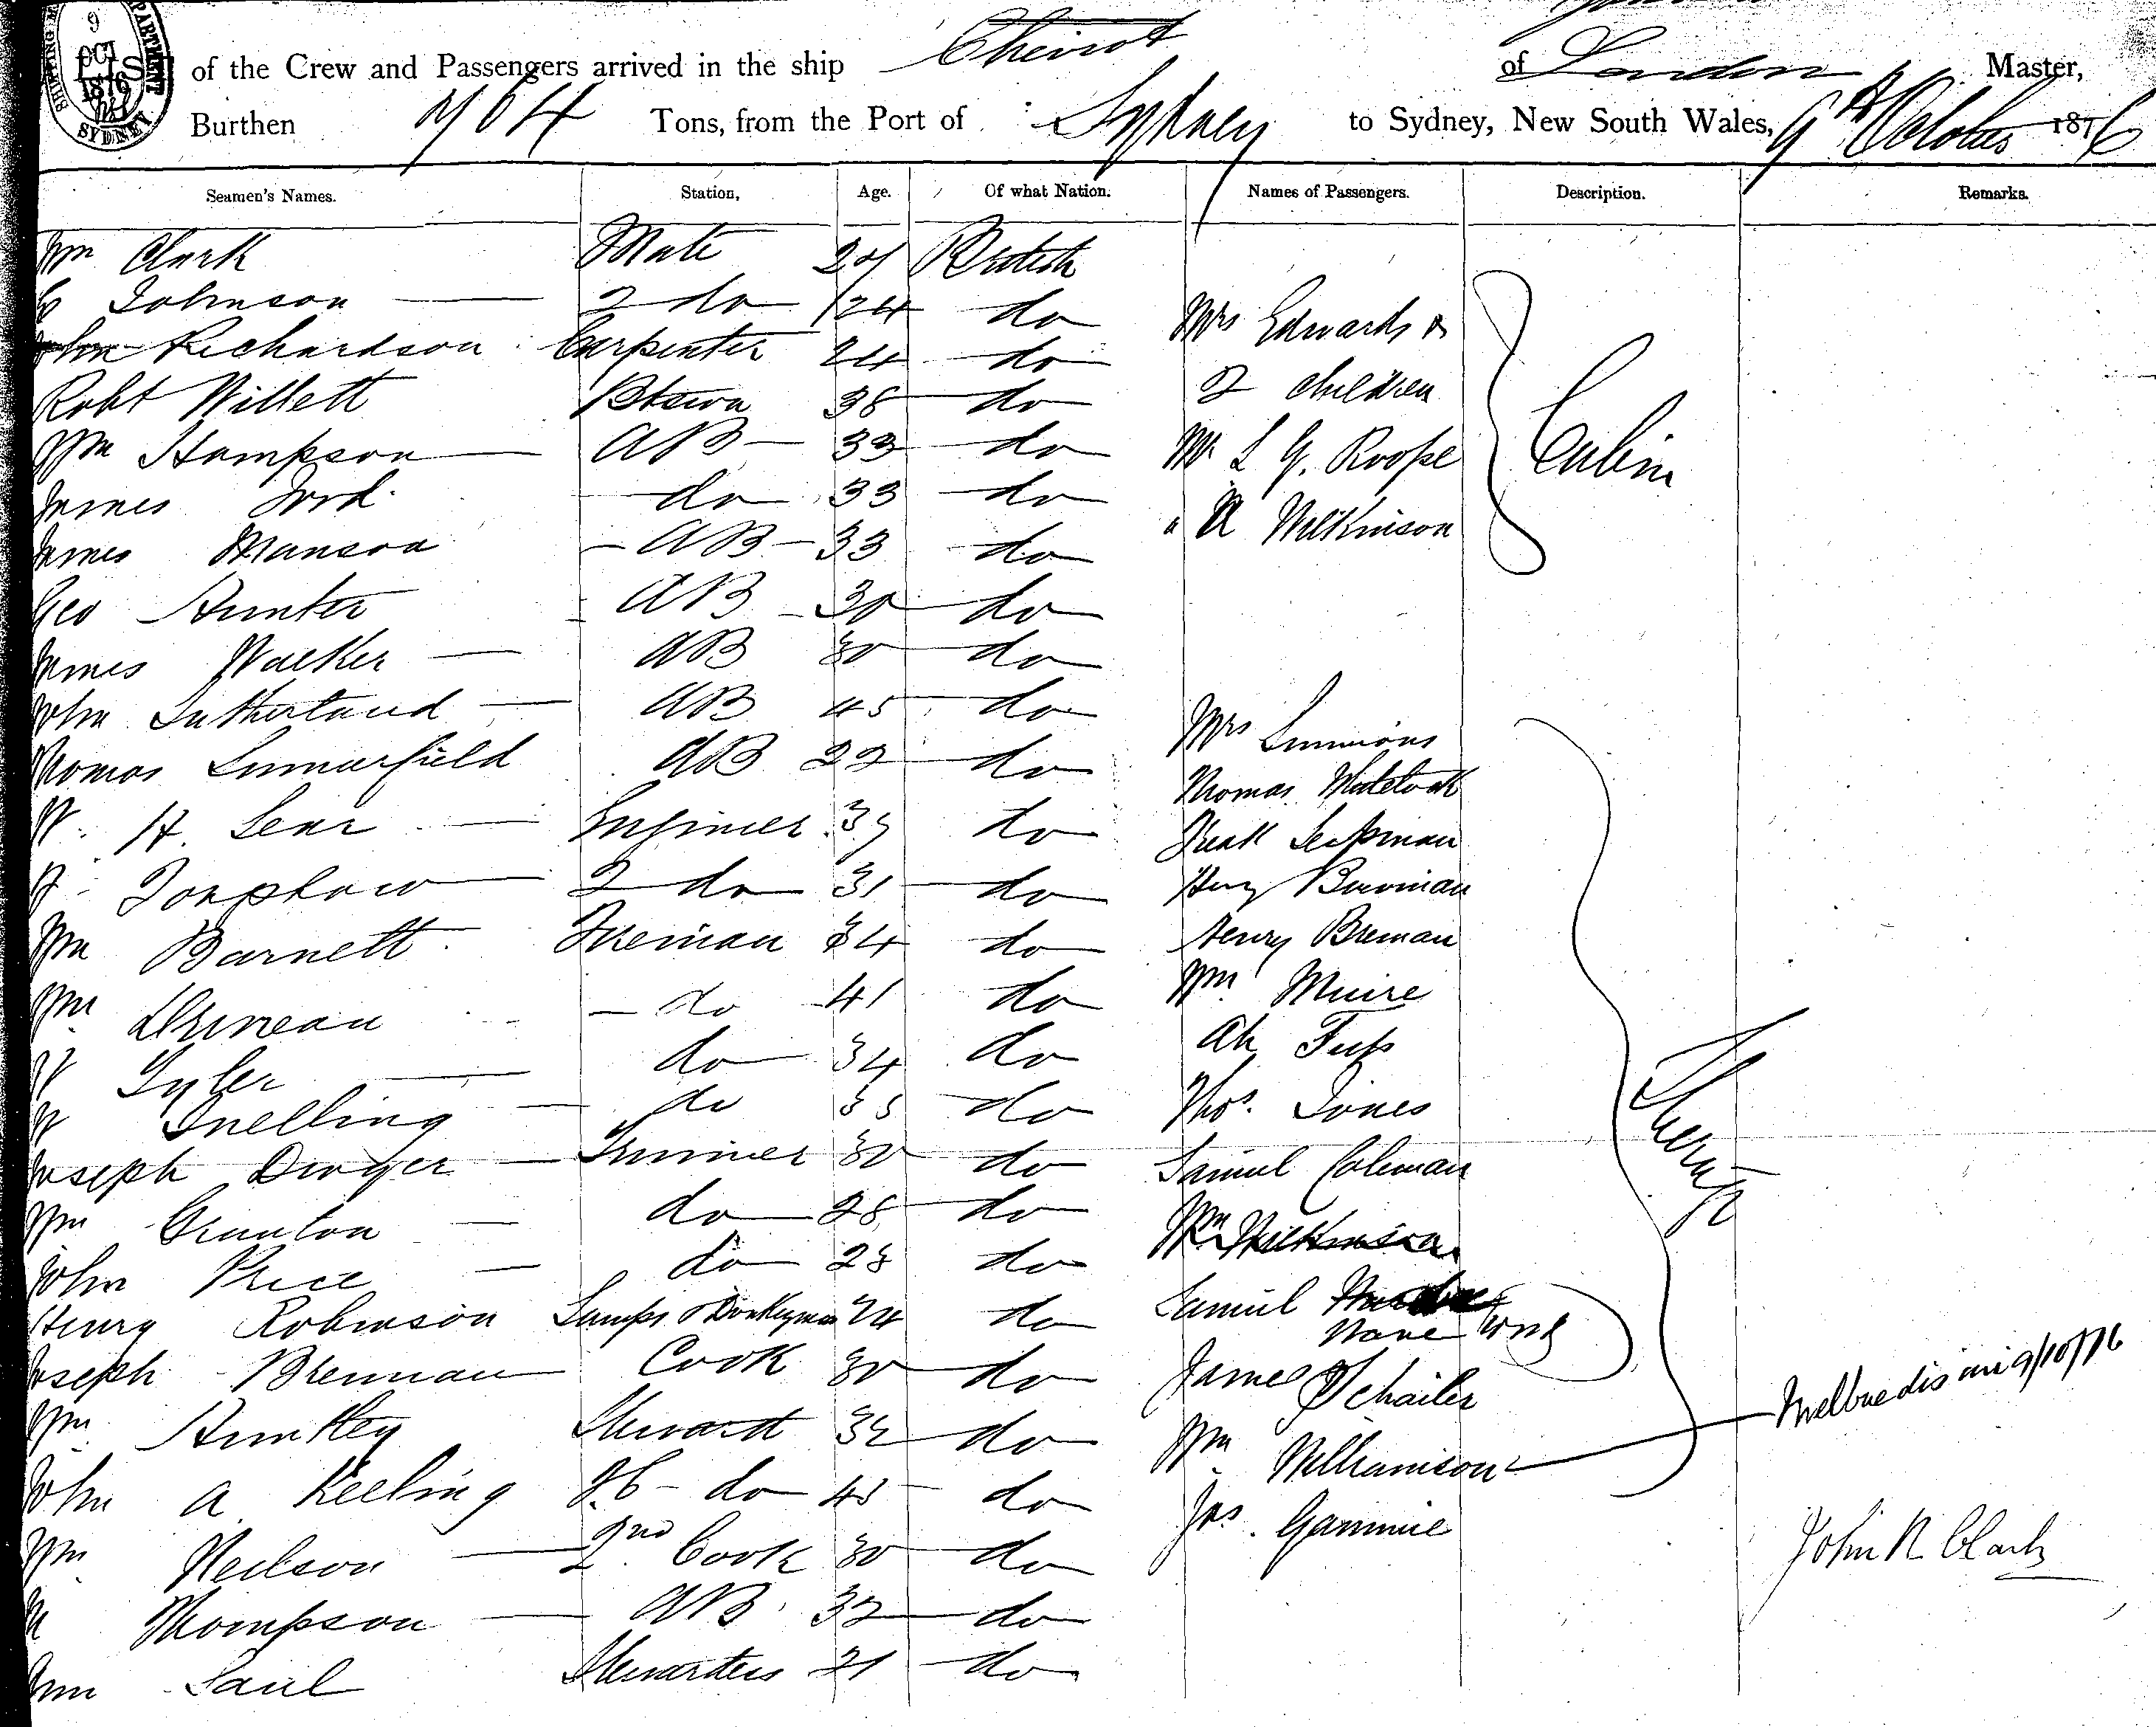 9 OCT 1876
SYDNEY
of the Crew and Passengers arrived in the ship Cheviot of London Master,
Burthen 764 Tons, from the Port of Sydney to Sydney, New South Wales, 9th October 1876
Seamen's Names. Station, Age. Of what Nation. Names of Passengers. Description. Remarks.
Wm Clark Mate 29 British
Johnson 2 do 24 do Mrs Edwards &
John Richardson Carpenter 24 do
Robt Willett Btswn 38 do 2 children
Wm Hampson AB 33 do Mr L G. Roope Cabin
James Ford do 33 do " A Wilkinson
James Manson AB 33 do
Geo Hunter AB 30 do
James Walker AB 30 do
John Sutherland AB 45 do Mrs Simmions
Thomas Sumarfield AB 22 do Thomas
W. H. Lear Engineer 39 do
Longstow 2 do 31 do Bowman
Wm Barnett Fireman 34 do Henry Breman
Wm do 41 do Wm Muire
Tyler do 34 do Ah
W Snelling do 35 do Thos. Jones Steerage
Joseph Dwyer Trimmer 30 do Samuel Coleman
Wm do 28 do Wm Wilkinson
John Price do 28 do Samuel
Henry Robinson Lamps & Donkeyman 24 do None
Joseph Brennan Cook 30 do James Schailer
Wm Huntley Steward 32 do Wm Williamson Melbne dis 9/10/76
John A Keeling do 45 do Jas. Gammie
Wm Neilson 2nd Cook 30 do John R Clark
Thompson AB 32 do
Ann Saul Stewardess 21 do